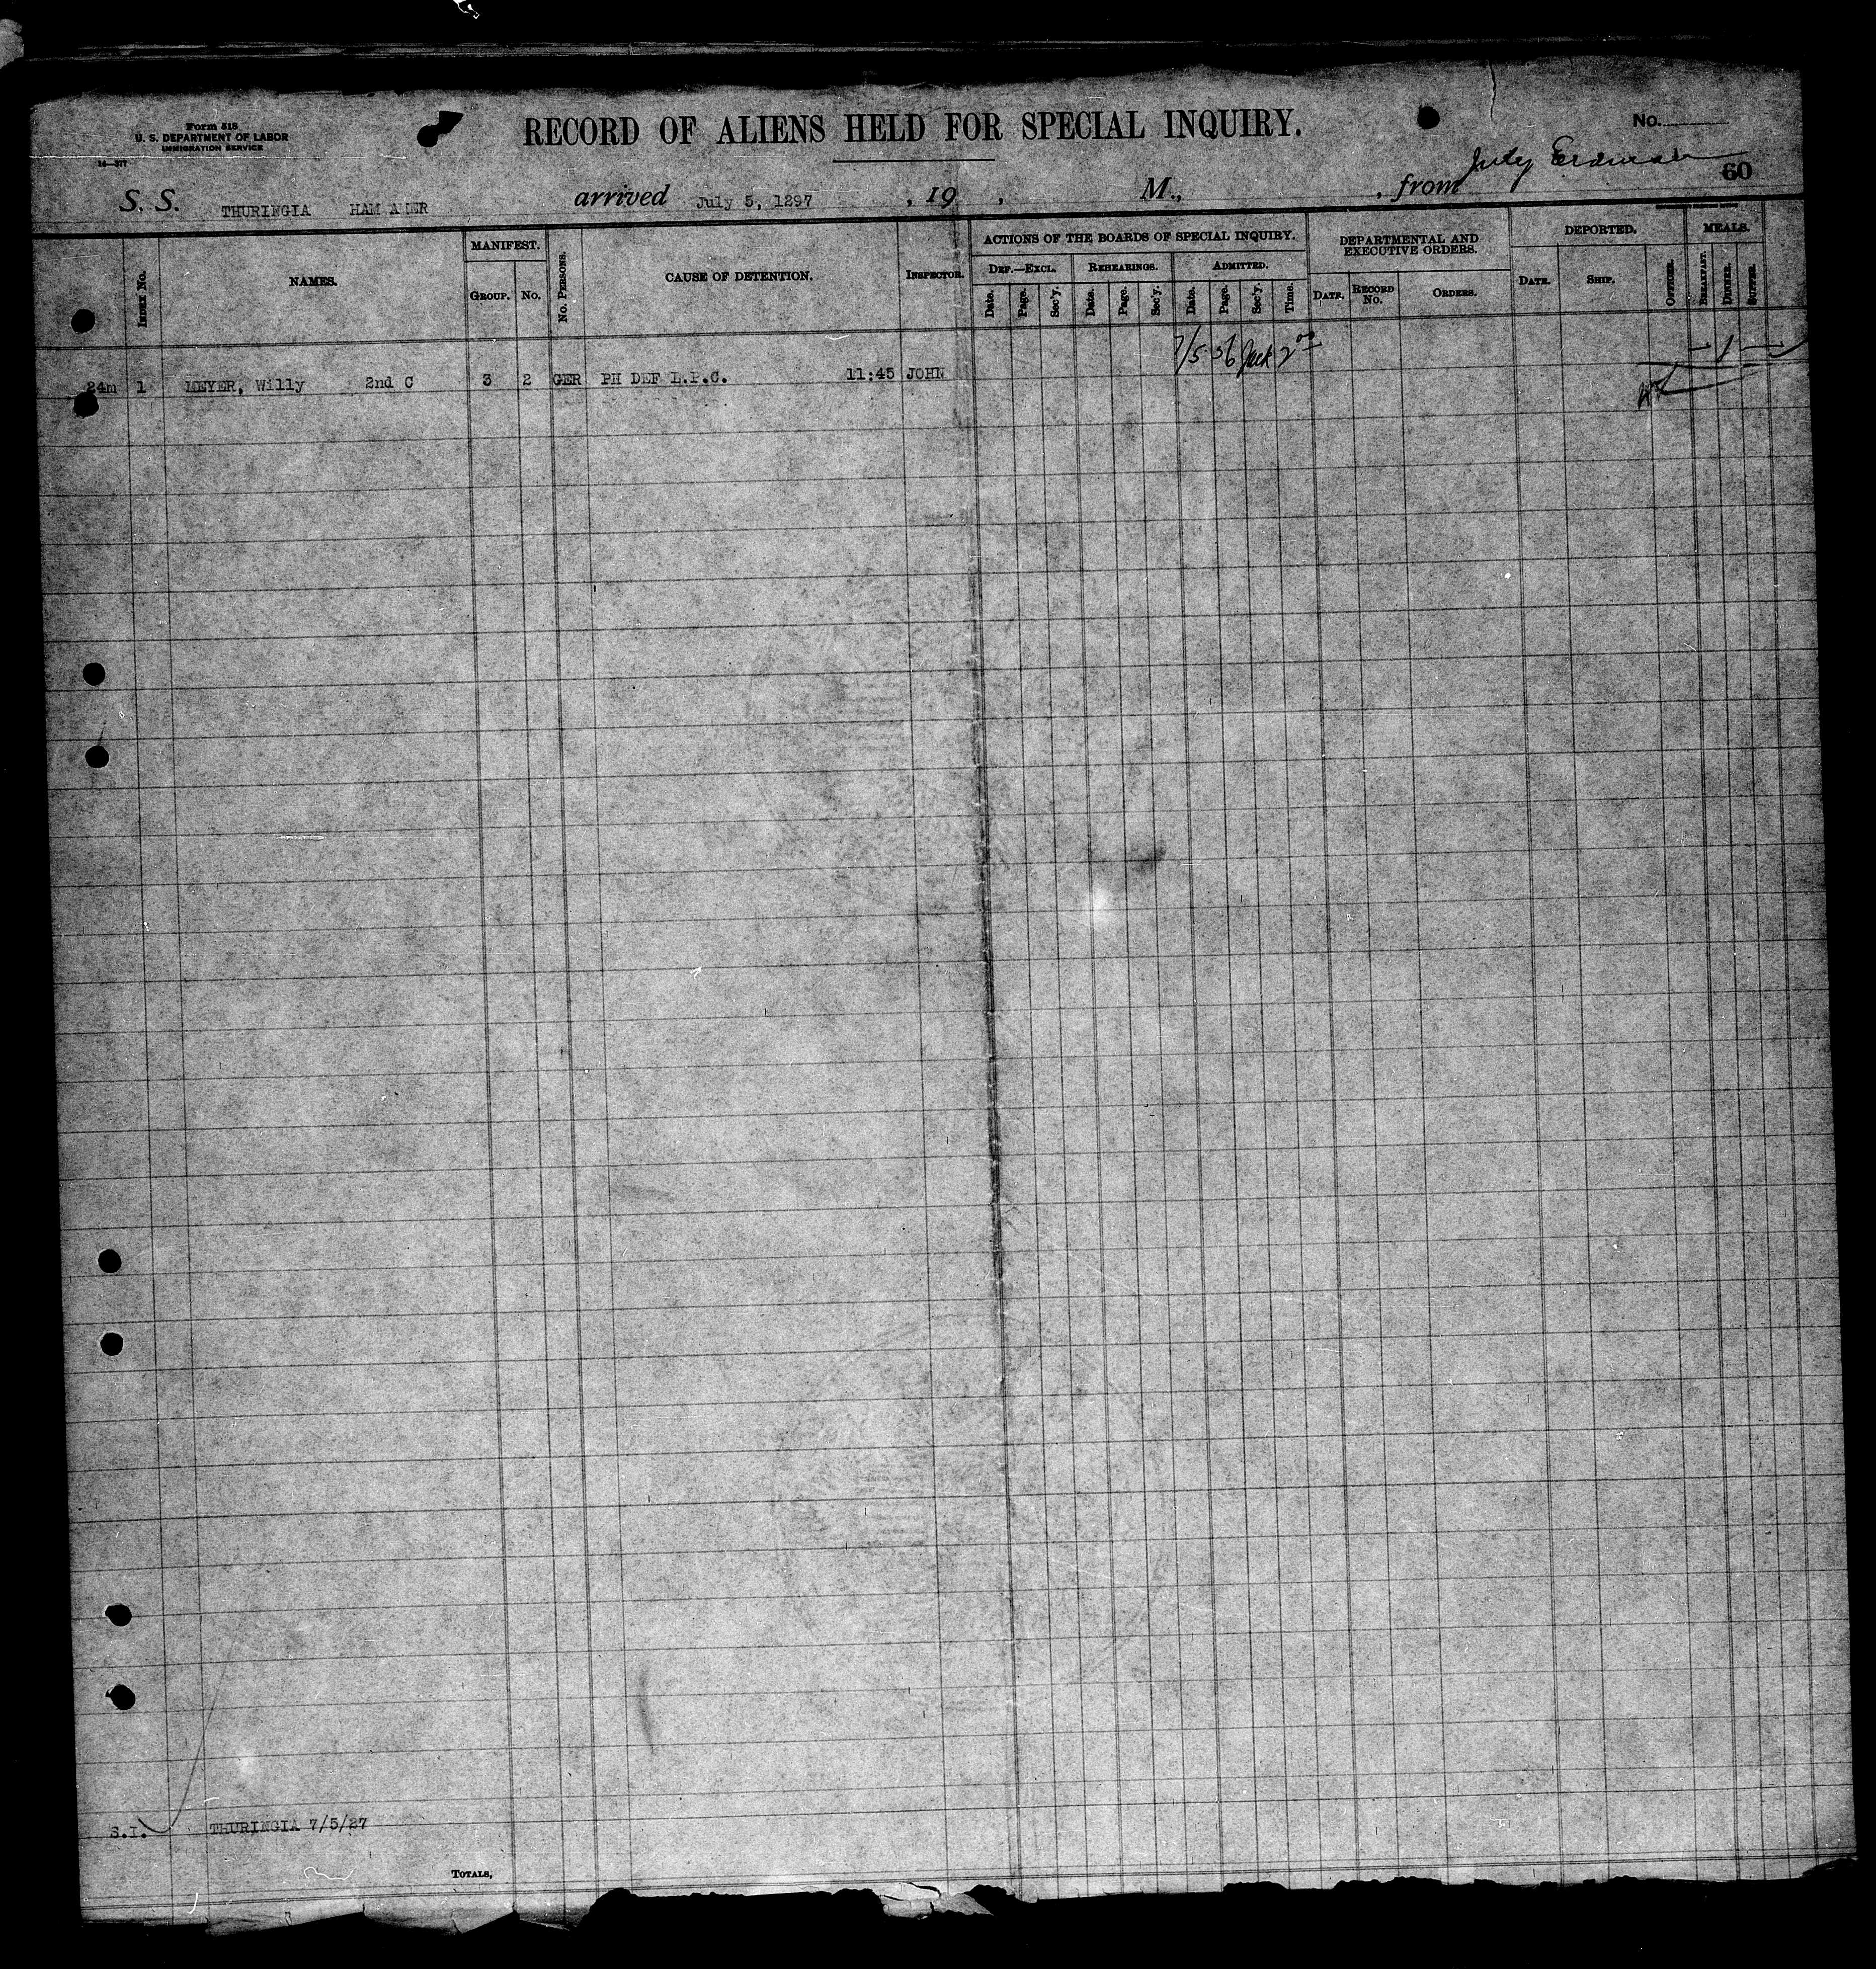 Form 518
U. S. DEPARTMENT OF LABOR
IMMIGRATION SERVICE
RECORD OF ALIENS HELD FOR SPECIAL INQUIRY.
No.
60
S. S. THURINGIA HAM AMER arrived July 5, 1297, 19 , M., , from
INDEX No.
NAMES.
MANIFEST.
GROUP. No.
No. PERSONS.
CAUSE OF DETENTION.
INSPECTOR.
ACTIONS OF THE BOARDS OF SPECIAL INQUIRY.
DEF.—EXCL. REHEARINGS. ADMITTED.
Date. Page. Sec'y. Date. Page. Sec'y. Date. Page. Sec'y. Time.
DEPARTMENTAL AND
EXECUTIVE ORDERS.
DATE. RECORD No. ORDERS.
DEPORTED.
DATE. SHIP. OFFICER.
MEALS.
BREAKFAST. DINNER. SUPPER.
24m 1 MEYER, Willy 2nd C 3 2 GER PH DEF L.P.C. 11:45 JOHN 7/5 36 2 00 1
S.I. THURINGIA 7/5/27
TOTALS,